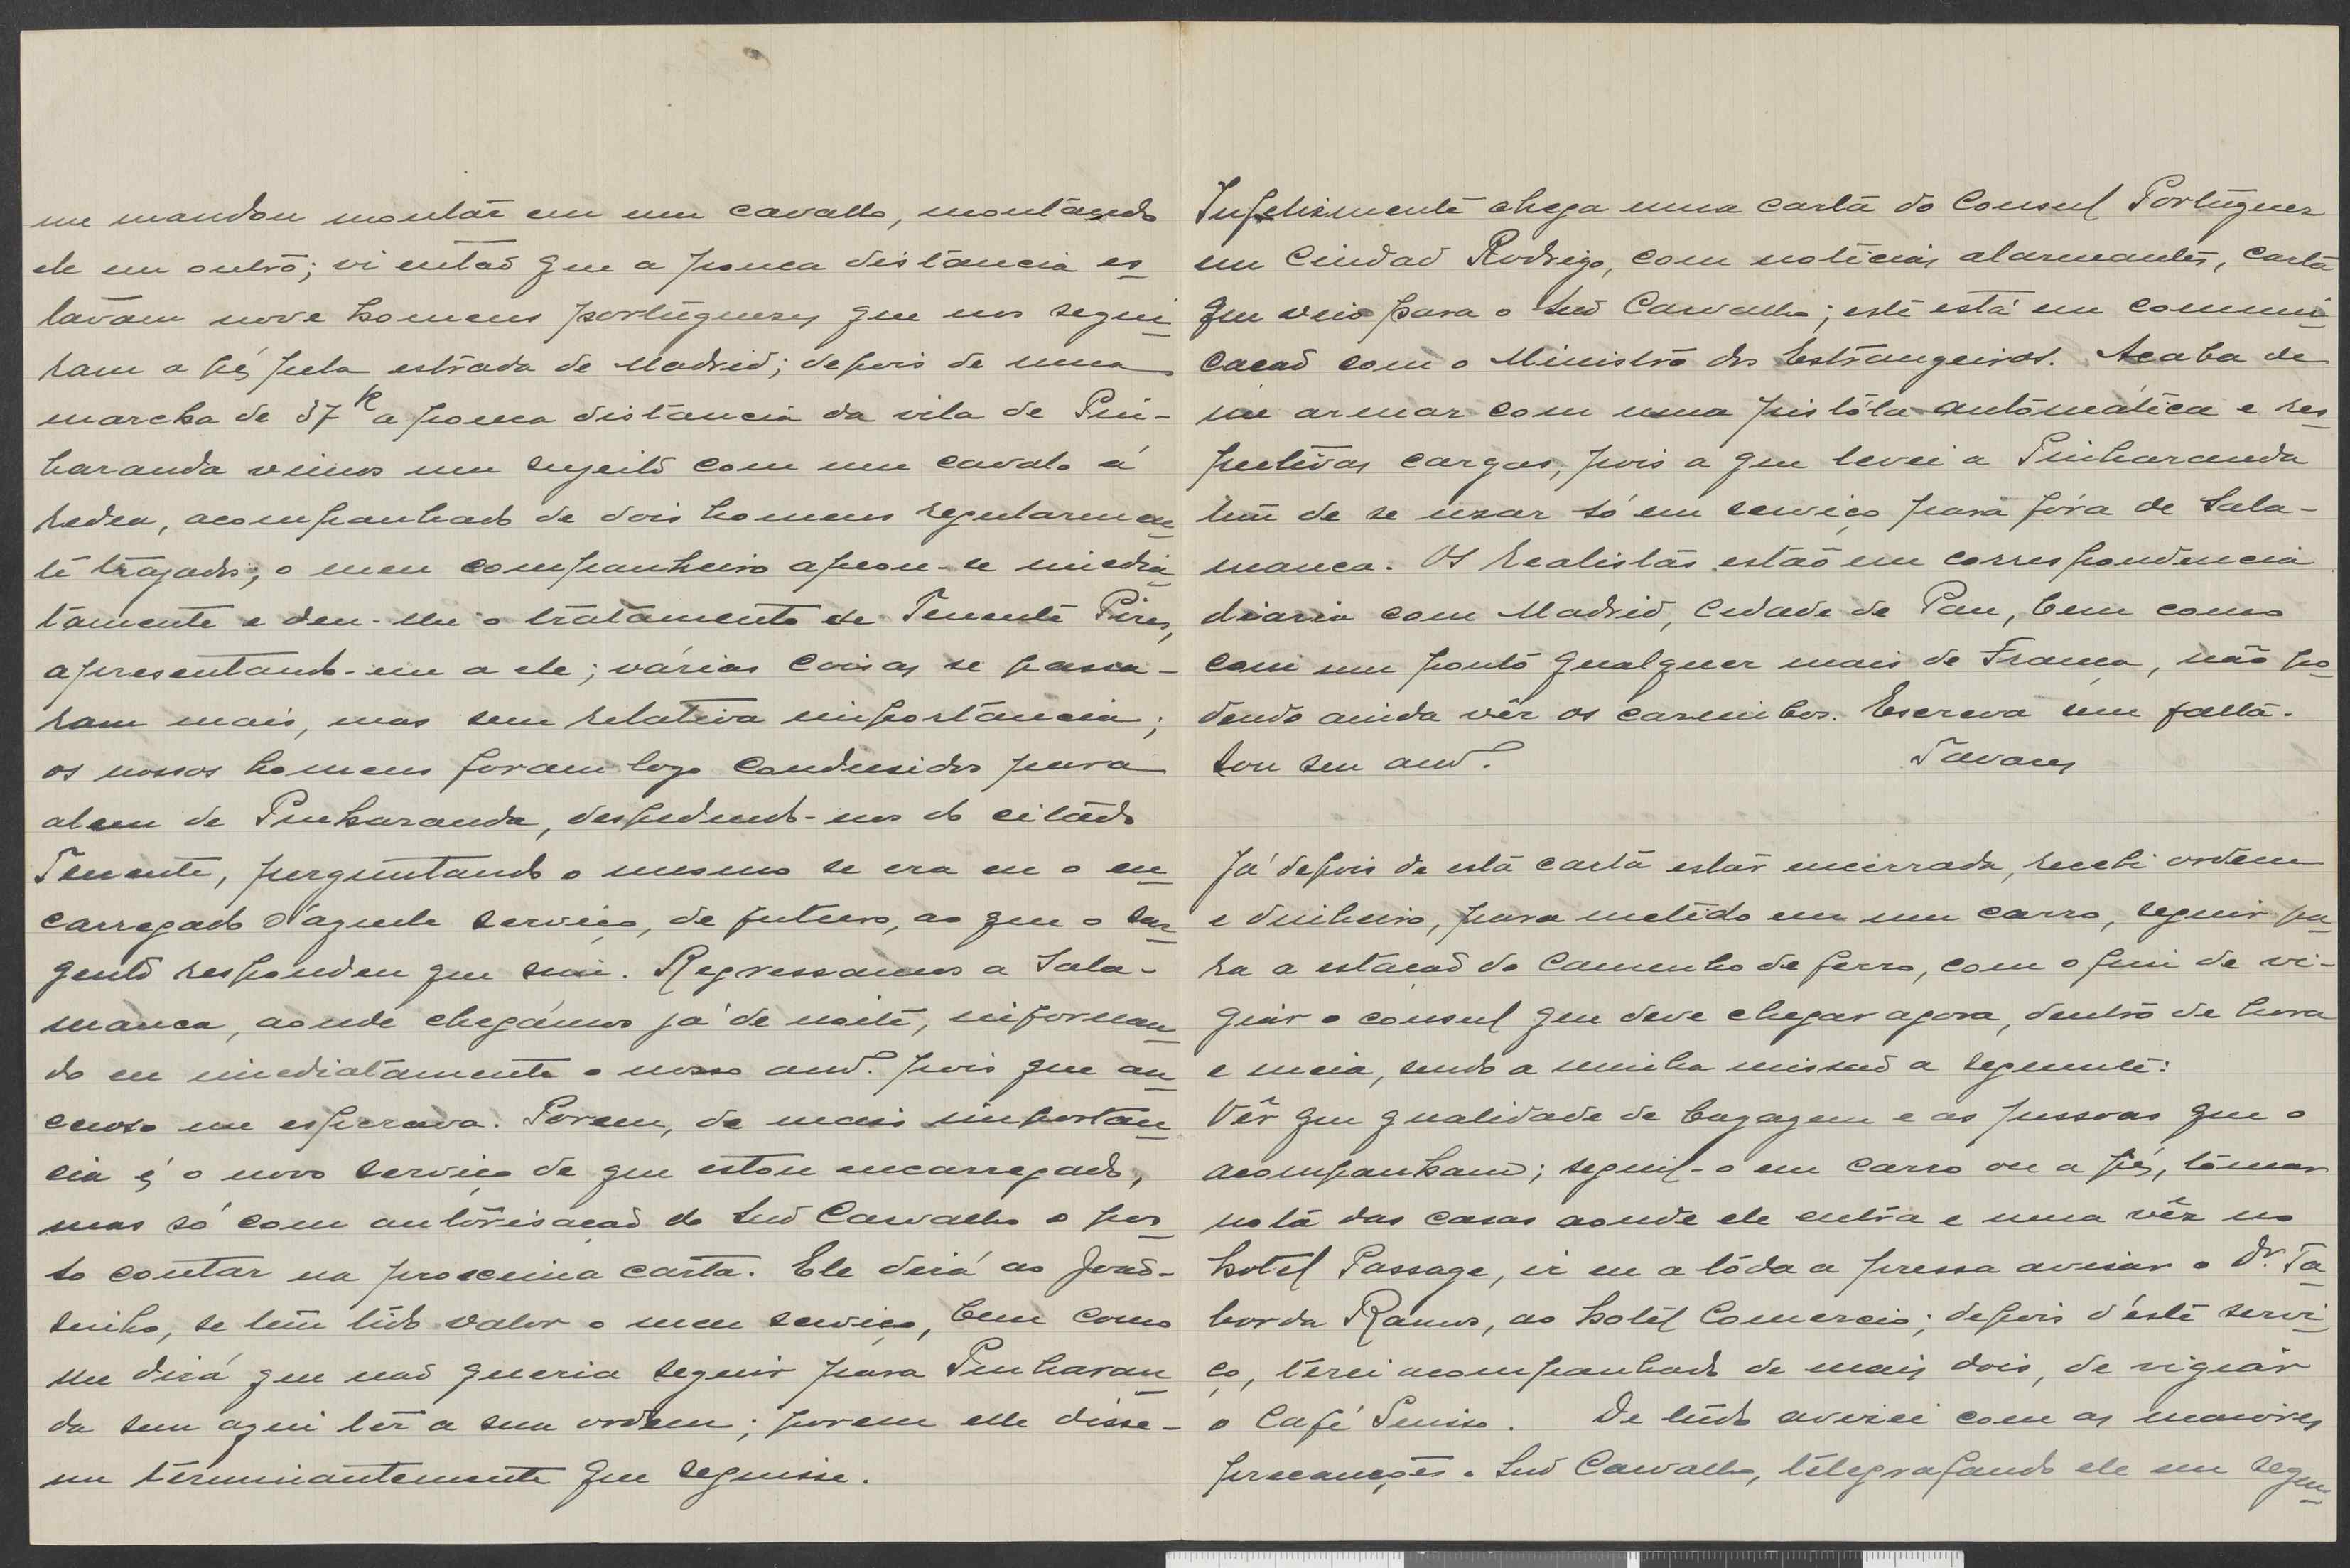 me mandou montar em um cavallo, montando
ele em outro; vi entaõ que a pouca distancia es-
tavam nove homens portuguezes que nos segui-
ram a pé pela estrada de Madrid; depois de uma
marcha de 37 k a pouca distancia da vila de Pin-
haranda vimos um sugeito com um cavalo á
redea, acompanhado de dois homens regularmen-
te trajados; o meu companheiro apeou-se imedia-
tamente e deu-lhe o tratamento de Tenente Pires,
apresentando-me a ele; várias coisas se passa-
ram mais, mas sem relativa importancia;
os nossos homens foram logo condusidos para
alem de Pinharanda, despedindo-nos do citado
Tenente, perguntando o mesmo se era eu o en-
carregado d'aquele serviço, de futuro, ao que o sar-
gento respondeu que sim. Regressamos a Sala-
manca, aonde chegámos já de noite, informan-
do eu imediatamente o nosso amº. pois que an-
cioso me esperava. Porem, de mais importan-
cia é o novo serviço de que estou encarregado,
mas só com autorisaçaõ do Snr Carvalho o pos-
so contar na proxima carta. Ele dirá ao Joaõ-
sinho, se tem tido valor o meu serviço, bem como
lhe dirá que naõ queria seguir para Pinharan-
da sem aqui ter a sua ordem; porem elle disse-
me terminantemente que seguisse.
Infelismente chega uma carta do Consul Portuguez
em Ciudad Rodrigo, com noticias alarmantes, carta
que veio para o Snr Carvalho; este está em communi-
caçaõ com o Ministro dos Estrangeiros. Acaba de
me armar com uma pistóla automática e res-
pectivas cargas, pois a que levei a Pinharanda
tem de se uzar só em serviço para fóra de Sala-
manca. Os realistas estaõ em correspondencia
diaria com Madrid, Cidade de Pau, bem como
com um ponto qualquer mais de França, não po-
dendo ainda vêr os carimbos. Escreva sem falta.
Sou seu amº.
Tavares
Já depois de esta carta estar encerrada, recebi ordem
e dinheiro, para metido em um carro, seguir pa-
ra a estaçaõ do Caminho de ferro, com o fim de vi-
giar o consul que deve chegar agora, dentro de hora
e meia, sendo a minha missaõ a seguinte:
Vêr que qualidade de bagagem e as pessoas que o
acompanham; seguil-o em carro ou a pé, tomar
nota das casas aonde ele entra e uma vêz no
hotel Passage, ir eu a tóda a pressa avisar o Dr. Ta-
borda Ramos, ao hotel Comercio; depois d'este servi-
ço, terei acompanhado de mais dois, de vigiar
o Café Suisso. De tudo avisei com as maiores
precauções o Snr Carvalho, telegrafando ele em segui-